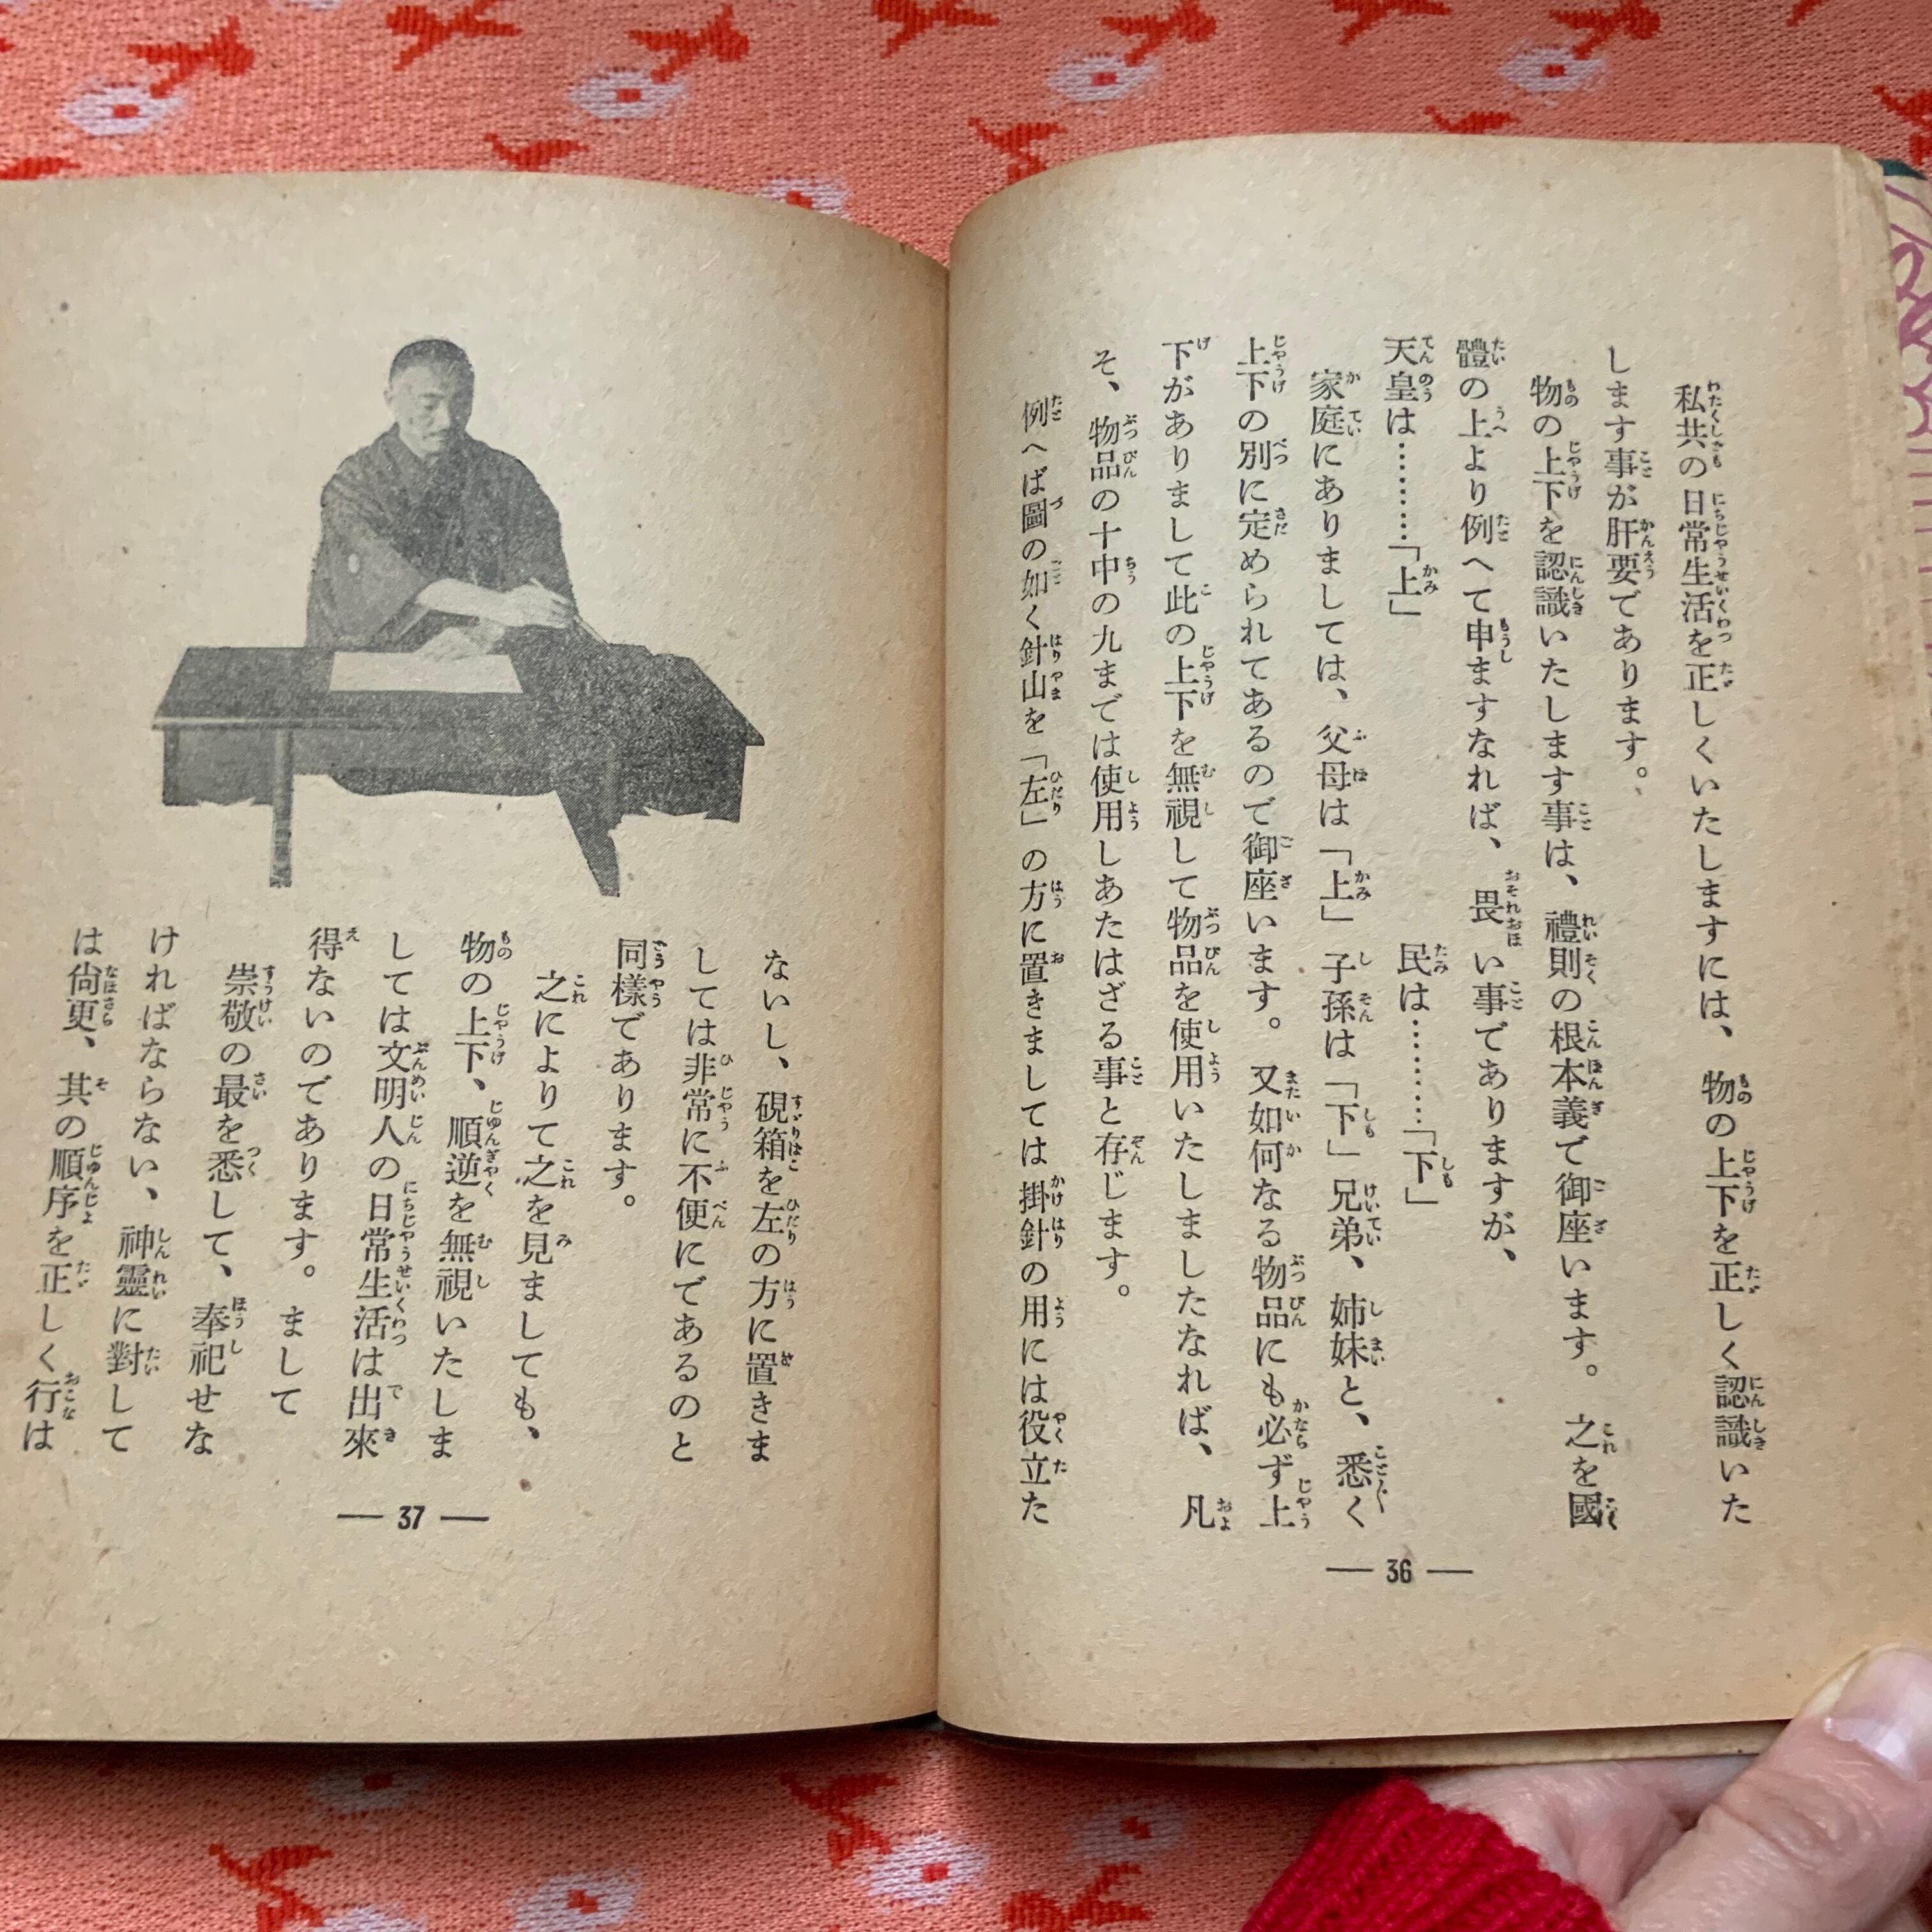 私共の日常生活を正しくいたしますには、物の上下を正しく認識いた
します事が肝要であります。
物の上下を認識いたします事は、禮則の根本義で御座います。之を國
體の上より例へて申ますなれば、畏い事でありますが、
天皇は………「上」　民は………「下」
家庭にありましては、父母は「上」子孫は「下」兄弟、姉妹と、悉く
上下の別に定められてあるので御座います。又如何なる物品にも必ず上
下がありまして此の上下を無視して物品を使用いたしましたなれば、凡
そ、物品の十中の九までは使用しあたはざる事と存じます。
例へば圖の如く針山を「左」の方に置きましては掛針の用には役立た
— 36 —
ないし、硯箱を左の方に置きま
しては非常に不便にであるのと
同樣であります。
之によりて之を見ましても、
物の上下、順逆を無視いたしま
しては文明人の日常生活は出來
得ないのであります。まして
崇敬の最を悉して、奉祀せな
ければならない、神靈に對して
は尙更、其の順序を正しく行は
— 37 —